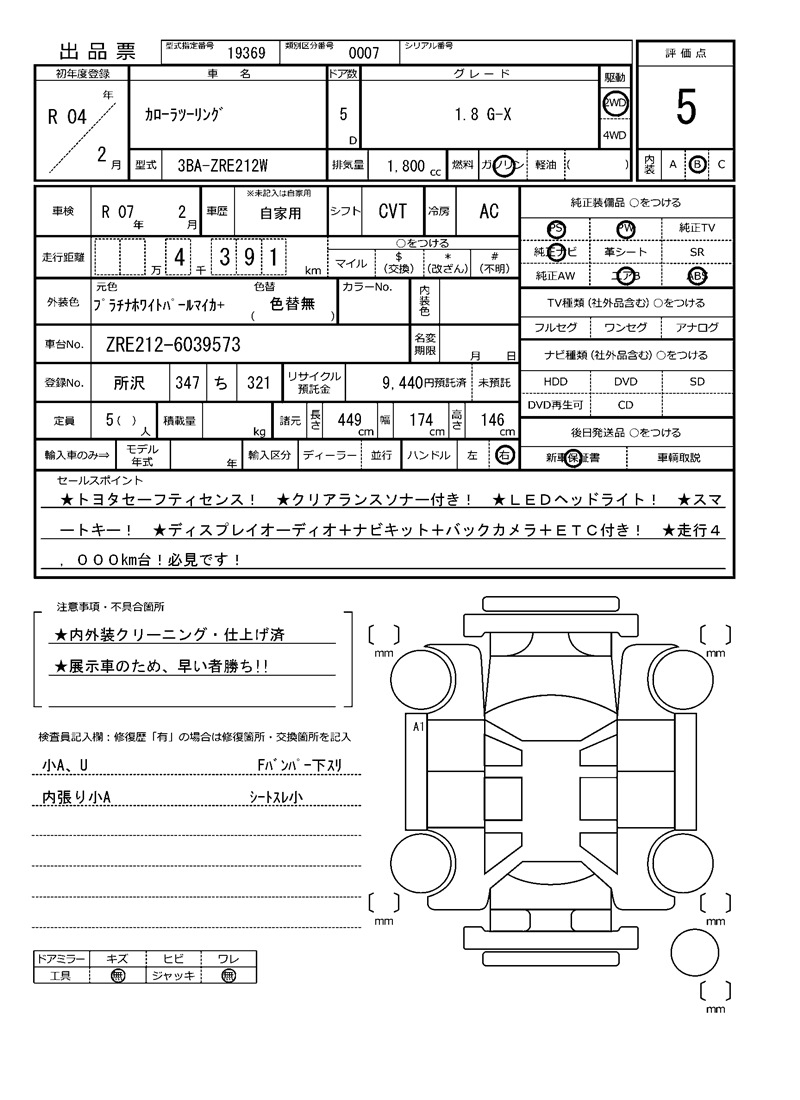 出品票 型式指定番号 19369 類別区分番号 0007 シリアル番号
評価点
5
内装 A B C
初年度登録 車名 ドア数 グレード 駆動
R 04 年 2 月 カローラツーリング 5 D 1.8 G-X 2WD 4WD
型式 3BA-ZRE212W 排気量 1,800 cc 燃料 ガソリン 軽油 ( )
車検 R 07 年 2 月 車歴 ※未記入は自家用 自家用 シフト CVT 冷房 AC
走行距離 万 4 千 3 9 1 km ○をつける
マイル $ (交換) * (改ざん) # (不明)
外装色 元色 プラチナホワイトパールマイカ+ 色替 ( 色替無 ) カラーNo. 内装色
車台No. ZRE212-6039573 名変期限 月 日
登録No. 所沢 347 ち 321 リサイクル預託金 9,440円預託済 未預託
定員 5 ( ) 人 積載量 kg 諸元 長さ 449 cm 幅 174 cm 高さ 146 cm
輸入車のみ⇒ モデル年式 年 輸入区分 ディーラー 並行 ハンドル 左 右
純正装備品 ○をつける
PS PW 純正TV
純正ナビ 革シート SR
純正AW エアB ABS
TV種類 (社外品含む) ○をつける
フルセグ ワンセグ アナログ
ナビ種類 (社外品含む) ○をつける
HDD DVD SD
DVD再生可 CD
後日発送品 ○をつける
新車保証書 車輌取説
セールスポイント
★トヨタセーフティセンス! ★クリアランスソナー付き! ★LEDヘッドライト! ★スマ
ートキー! ★ディスプレイオーディオ+ナビキット+バックカメラ+ETC付き! ★走行4
,000km台!必見です!
注意事項・不具合箇所
★内外装クリーニング・仕上げ済
★展示車のため、早い者勝ち!!
検査員記入欄:修復歴「有」の場合は修復箇所・交換箇所を記入
小A、U Fバンパー下スリ
内張り小A シートスレ小
ドアミラー キズ ヒビ ワレ
工具 無 ジャッキ 無
mm mm
A1
mm mm
mm